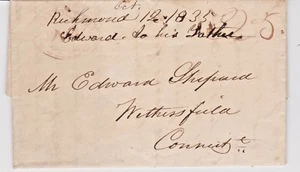 Oct.
Richmond 12 1835
Edward to his Father
25.
Mr Edward Shepard
Wethersfield
Connect